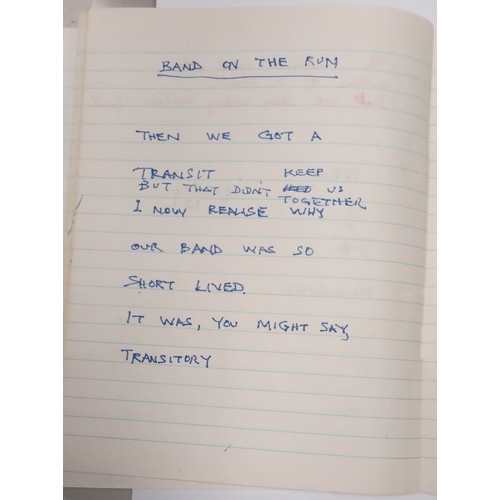 BAND ON THE RUN
THEN WE GOT A
TRANSIT KEEP
BUT THAT DIDN'T US
TOGETHER
I NOW REALISE WHY
OUR BAND WAS SO
SHORT LIVED.
IT WAS, YOU MIGHT SAY,
TRANSITORY